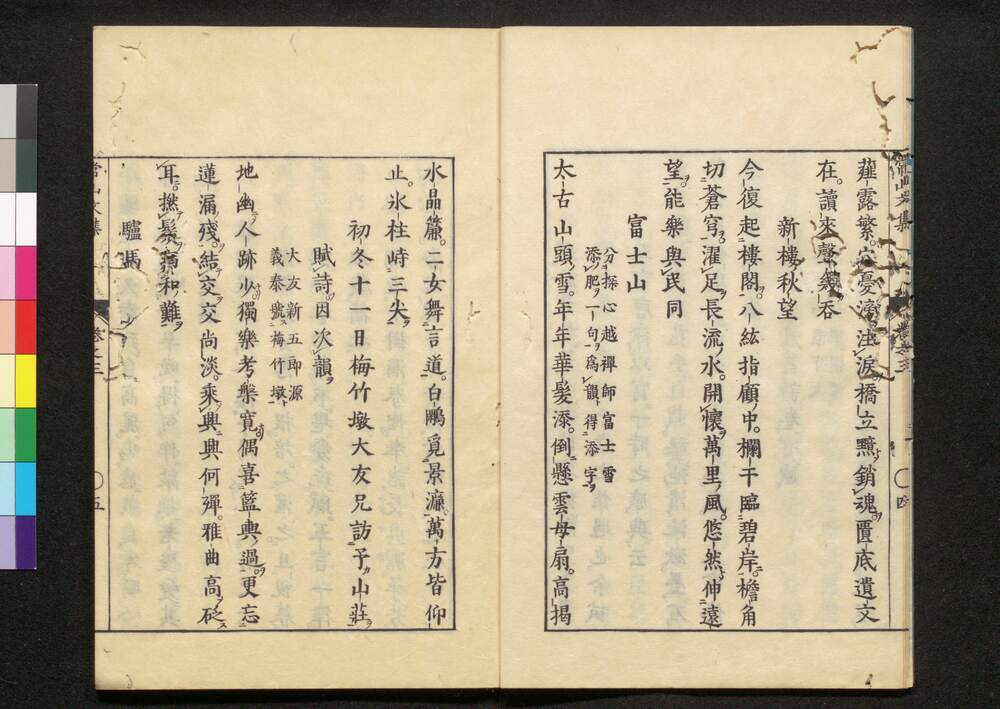 薤露繁心憂濟注淚橋立黯銷魂匱底遺文
在讀來聲緫呑
新樓秋望
今復起樓閣八紘指顧中欄干臨碧岸檐角
切蒼穹濯足長流水開懷萬里風悠然伸遠
望能樂與民同
富士山
分探心越禪師富士雪
添肥一句爲韻得添字
太古山頭雪年年華髮添倒懸雲母扇高揭
水晶簾二女舞言道白鷴覓景濂萬方皆仰
止氷柱峙三尖
初冬十一日梅竹墩大友兄訪予山莊
賦詩因次韻
大友新五郎源
義泰號梅竹墩
地幽人跡少獨樂考槃寬偶喜籃輿過更忘
蓮漏殘結交交尚淡乘興興何殫雅曲高砭
耳撚鬚和難
驢馬